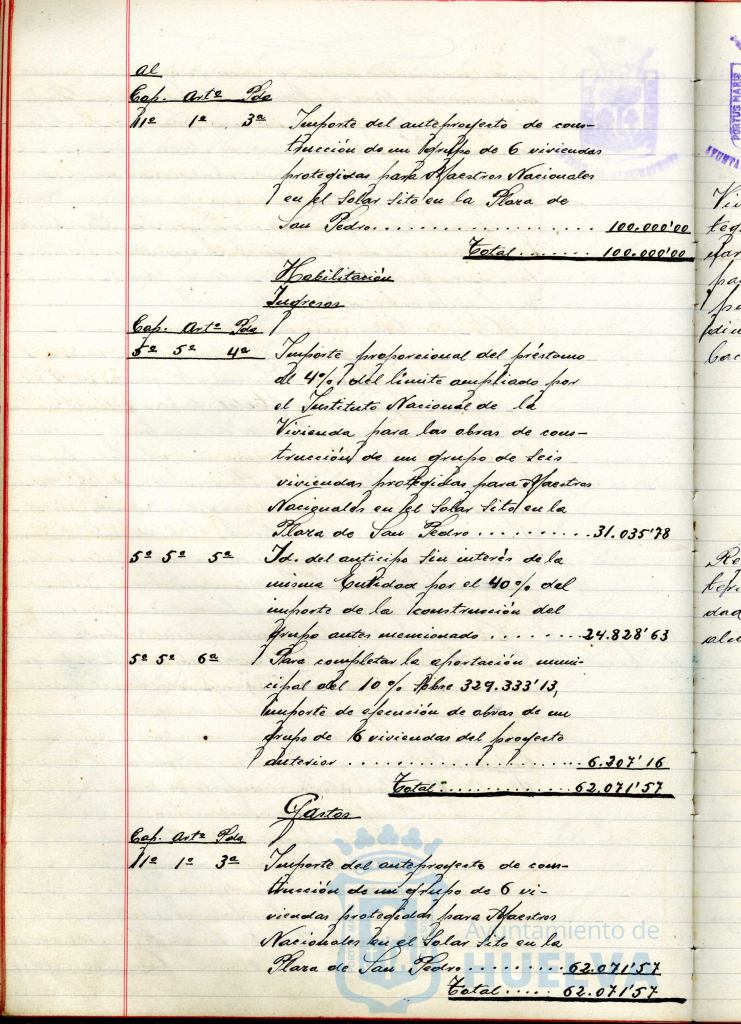 al
Cap. Artº Pda
11º 1º 3ª Importe del anteproyecto de cons-
trucción de un grupo de 6 viviendas
protegidas para Maestros Nacionales
en el Solar Sito en la Plaza de
San Pedro.................... 100.000'00
Total........ 100.000'00
Habilitación
Ingresos
Cap. Artº Pda
5º 5º 4ª Importe proporcional del préstamo
al 4% del límite ampliado por
el Instituto Nacional de la
Vivienda para las obras de cons-
trucción de un grupo de Seis
viviendas protegidas para Maestros
Nacionales en el Solar Sito en la
Plaza de San Pedro .......... 31.035'78
5º 5º 5ª Id. del anticipo sin interés de la
misma Entidad por el 40% del
importe de la construcción del
grupo antes mencionado ....... 24.828'63
5º 5º 6ª Para completar la aportación muni-
cipal del 10% Sobre 329.333'13,
importe de ejecución de obras de un
grupo de 6 viviendas del proyecto
anterior .................... 6.207'16
Total.............. 62.071'57
Gastos
Cap. Artº Pda
11º 1º 3ª Importe del anteproyecto de cons-
trucción de un grupo de 6 vi-
viendas protegidas para Maestros
Nacionales en el Solar Sito en la
Plaza de San Pedro.......... 62.071'57
Total..... 62.071'57
Ayuntamiento de
HUELVA
PORTUS MARIS